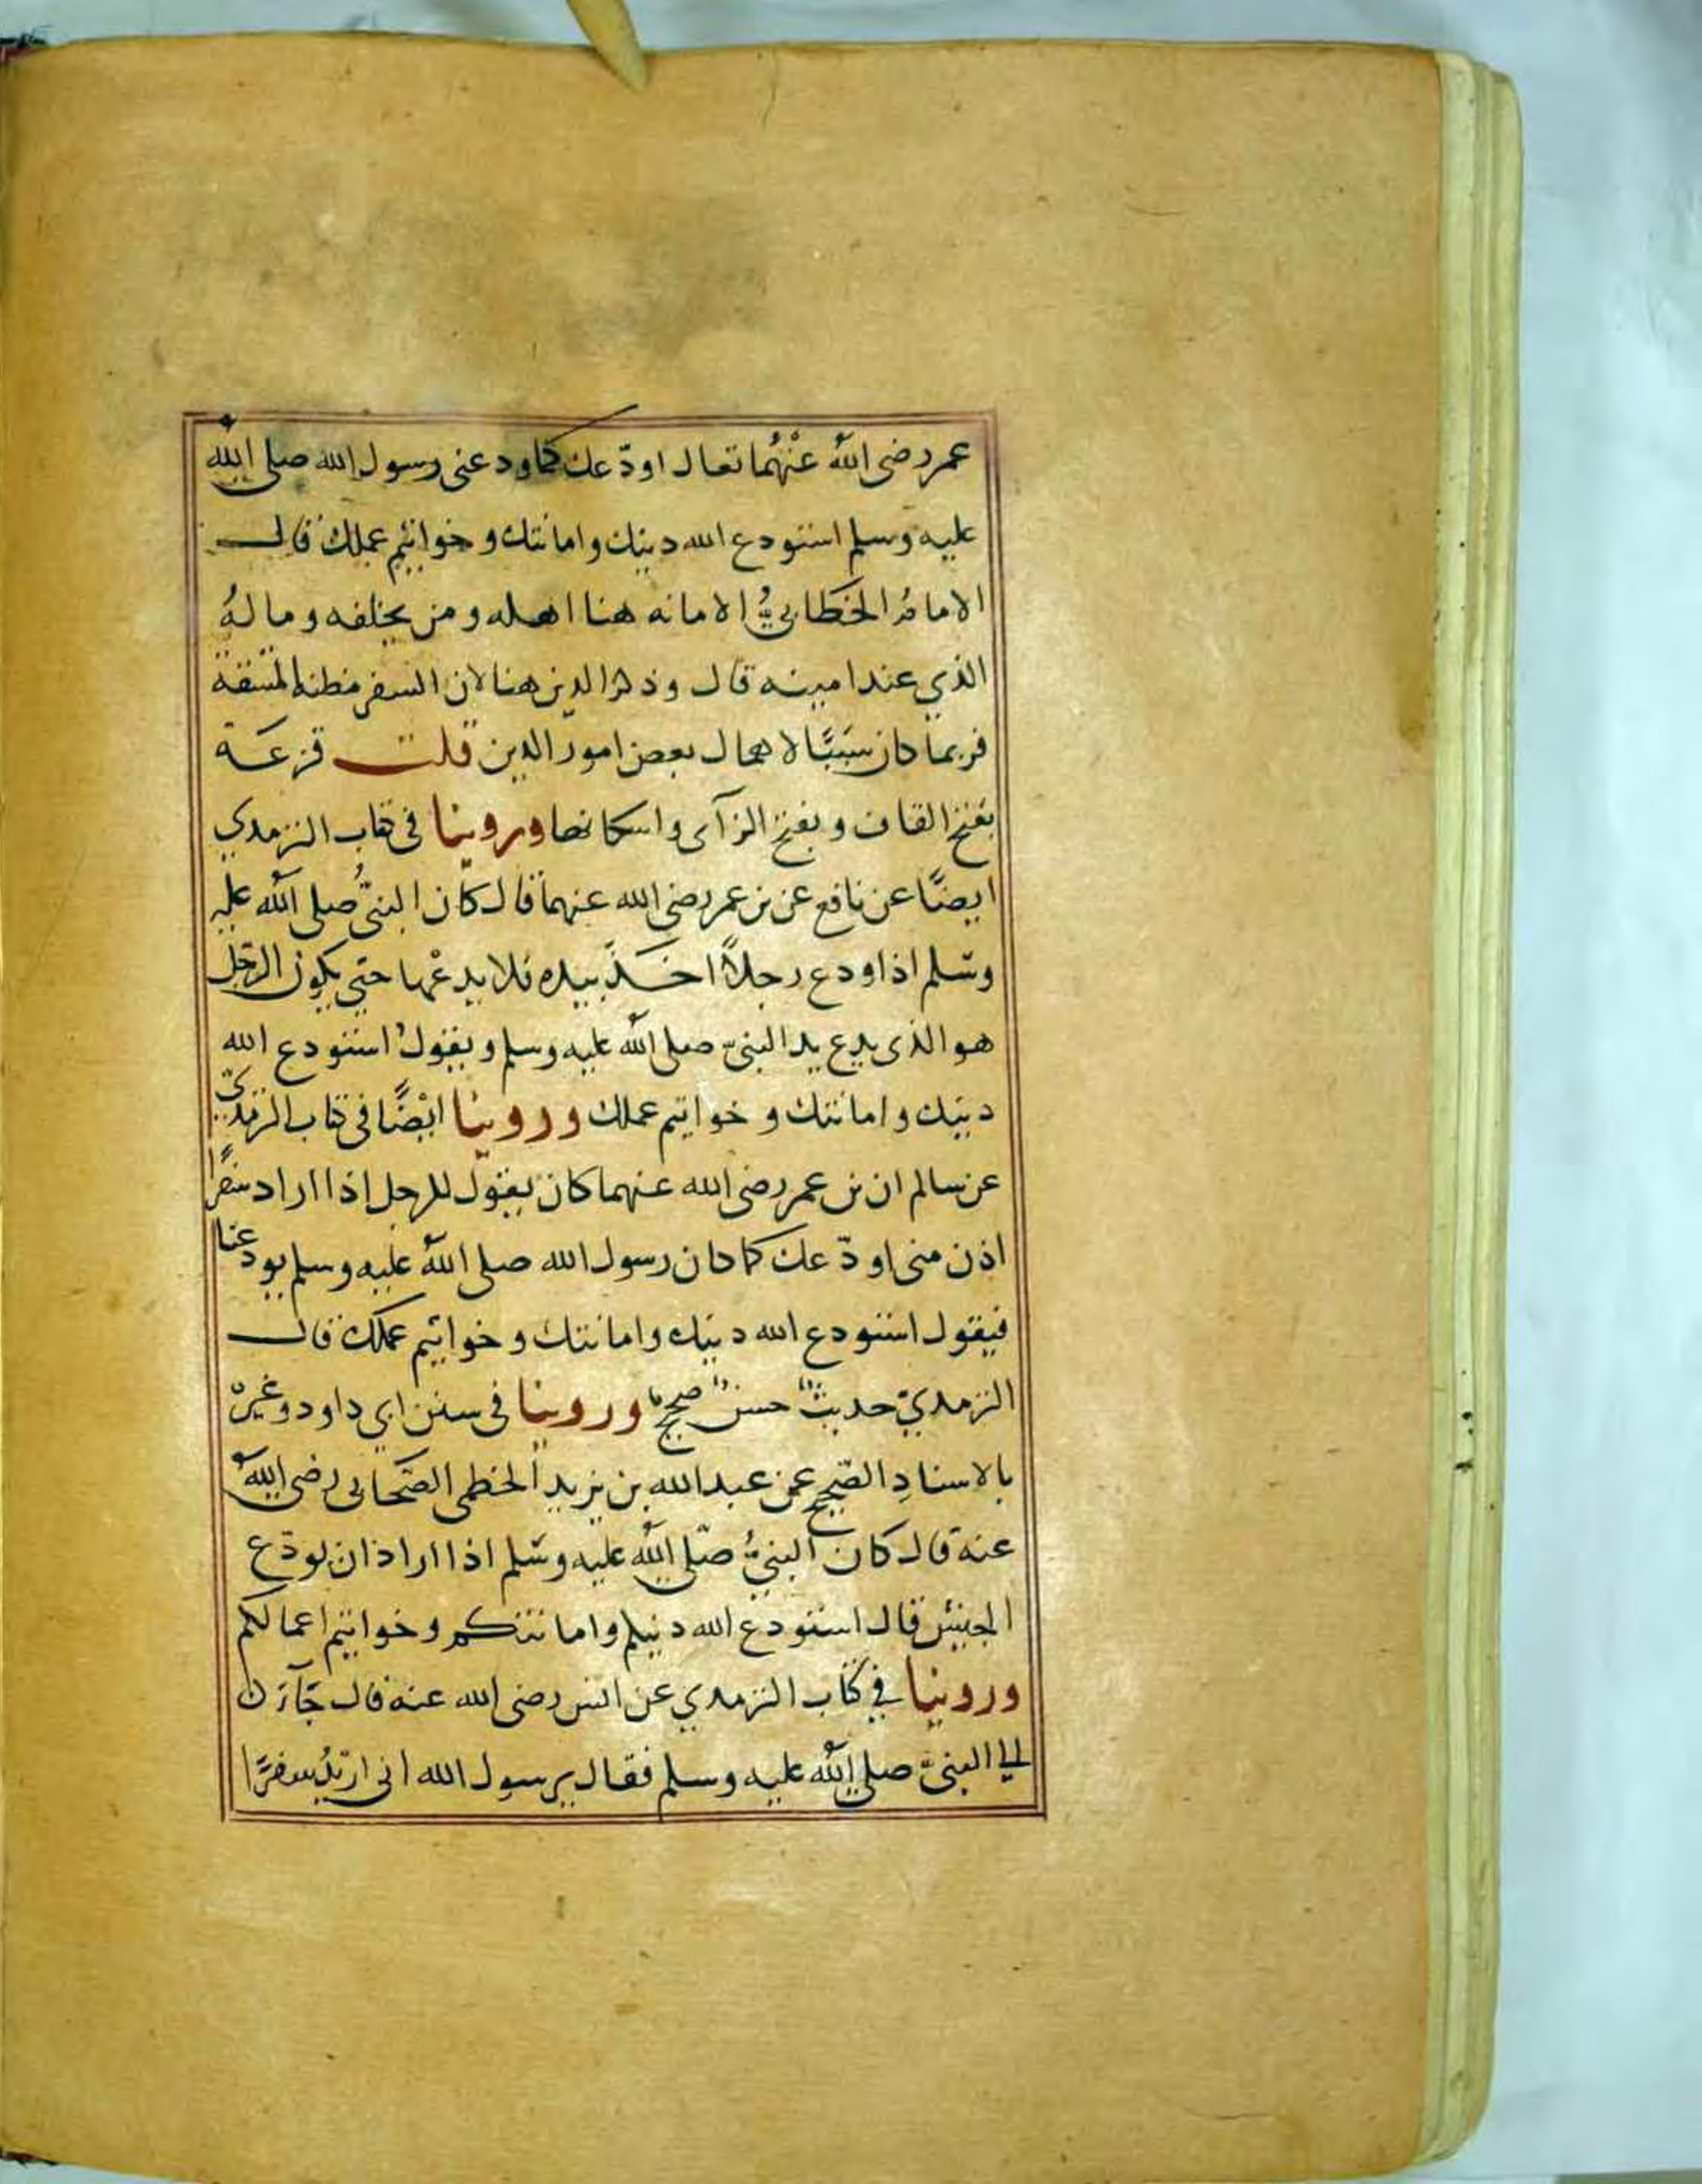 عمر رضى اللهُ عنْهُما تعال اودّعك كما ودعنى رسول الله صلى الله
عليه وسلم استودع الله دينك وامانتك وخواتيم عملك قال
الامامُ الخطابىُّ الامانه هنا اهله ومن يخلفه ومالهُ
الذي عند امينه قال وذكر الدين هنا لان السفر مظنه المشقة
فربما كان سَبَبًا لاهمال بعض امور الدين قلت قزعَة
بفتح القاف وبفتح الزآى واسكانها وروينا فى كتاب الترمدي
ايضًا عن نافع عن بن عمر رضى الله عنهما قال كان النبىُّ صلى الله عليه
وسّلم اذا ودع رجلاً اخَذَ بيده فلا يدعْها حتي يكون الرّجل
هو الذى يدع يد النبىّ صلى الله عليه وسلم ويقولُ استودع الله
دينك وامانتك وخواتيم عملك وروينا ايْضًا فى كتاب الترمديّ
عن سالم ان بن عمر رضى الله عنهما كان يقول للرجل اذا اراد سفرًا
اذن منى اودّعك كما كان رسول الله صلى اللهُ عليه وسلم يودعنا
فيقول استودع الله دينك وامانتك وخواتيم عملك قال
الترمديّ حديثٌ حسنٌ صحيحٌ وروينا فى سنن ابي داود وغيره
بالاسنادِ الصّحيح عن عبد الله بن يزيد الخطمى الصّحابى رضى اللهُ
عنه قال كان النبىُّ صلّى الله عليه وسّلم اذا اراد ان يودّع
الجيش قال استودع الله دينكم وامانتكم وخواتيم اعمالكم
وروينا في كتاب الترمدي عن انس رضى الله عنه قال جآء رجل
الي النبىّ صلى اللهُ عليه وسلم فقال يرسول الله انى اريْدُ سفرًا